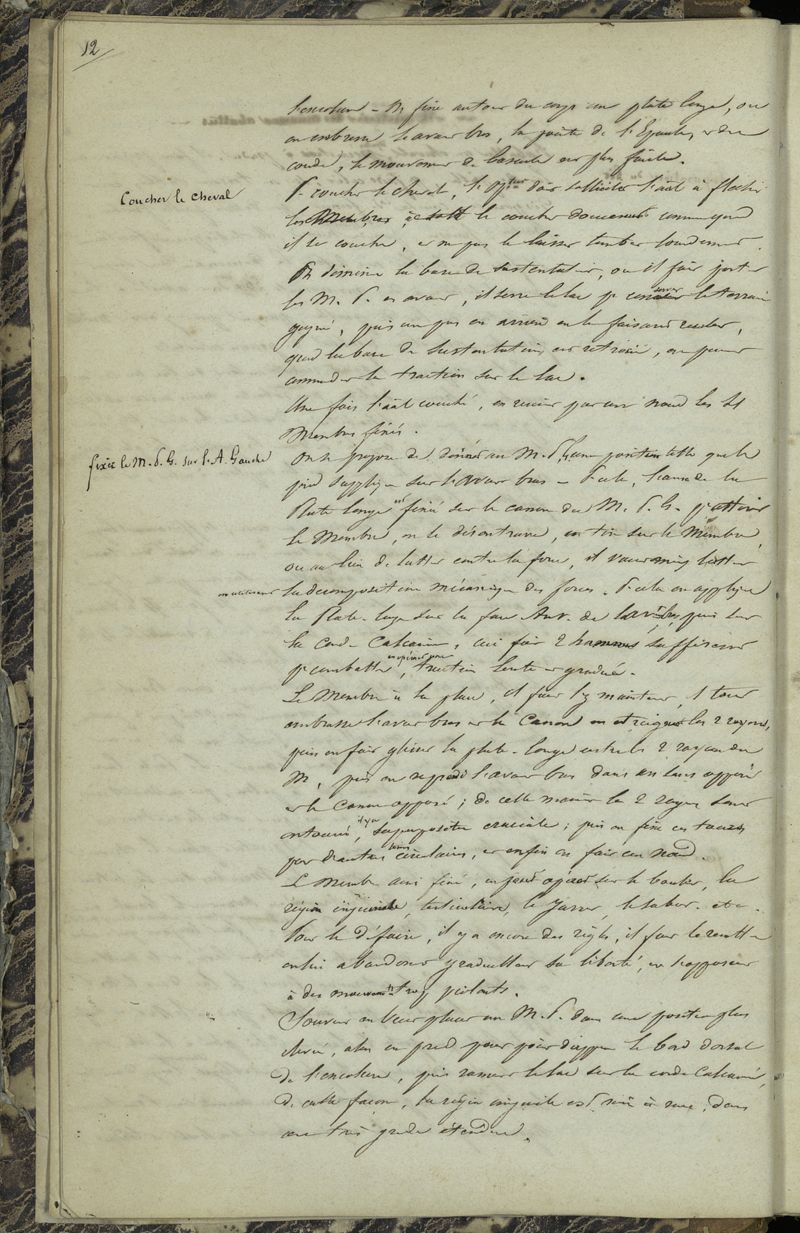 12
l'encolure - On fixe autour du corps une plate longe, on
en embrasse l'avant bras, la pointe de l'Epaule, et du
coude, le mouvement de bascule est plus facile.
Coucher le cheval
Pr coucher le cheval, l' doit solliciter l'aal à fléchir
les Membres, le coucher doucement comme quand
il se couche, et ne pas le laisser tomber lourdement.
On diminue la base de sustentation, on il fait porter
les M. P. en avant, il serre le lac pr conserver le terrain
gagné, puis un pas en arrière en le faisant reculer,
quand la base de sustentation est retrécie, on peut
commander la traction sur le lac.
Une fois l'aal couché, on réunit par un nœud les 4
Membres fixés.
fixer le M. P. G. sur l'A. Gauche
On se propose de donner au M. P. G. une position telle que le
pied s'applique sur l'avant bras - Pr cela, l'anse de la
Plate longe est fixée sur le canon du M. P. G. pr attirer
le Membre, on le désentrave, on tire sur le Membre,
ou au lieu de lutter contre la force, il vaut mieux lutter
la decomposition mécanique des forces. Pr cela on applique
la Plate-longe sur la face Ant. de puis sur
la Corde Calcanée, ici fait 2 hommes suffisent
pr combattre, traction lente et graduée.
Le Membre à la place, il faut l'y maintenir, 1 tour
embrasse l'avant bras et le Canon en et les 2 rayons,
puis on fait glisser la plate-longe entre les 2 rayons du
M, puis on reprend l'avant bras dans un sens opposé
et le Canon opposé; de cette manière les 2 rayons sont
entourés, il y a superposition cruciale; puis on fixe
par d'autres tours circulaires, et enfin on fait un nœud.
Le Membre ainsi fixé, on peut opérer sur le boulet, la
région inguinale, testiculaire, le Jarret, le tabor. etc.
Pour le défaire, il y a encore des règles, il faut le remettre
enfin abandonner graduellement sa liberté, en s'opposant
à des mouvements trop violents.
Souvent on veut placer un M. P. dans une position plus
élevée, alors on prend pour point d'appui le bord dorsal
de l'encolure, puis ramener le lac sur la corde Calcanée,
de cette façon, la région inguinale est mise à nue, dans
une très grande étendue.